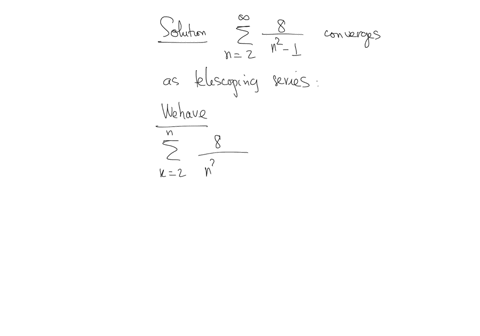 Solution ∞ ∑ n=2 8/(n²-1) converges
as telescoping series:
We have
n ∑ k=2 8/n²